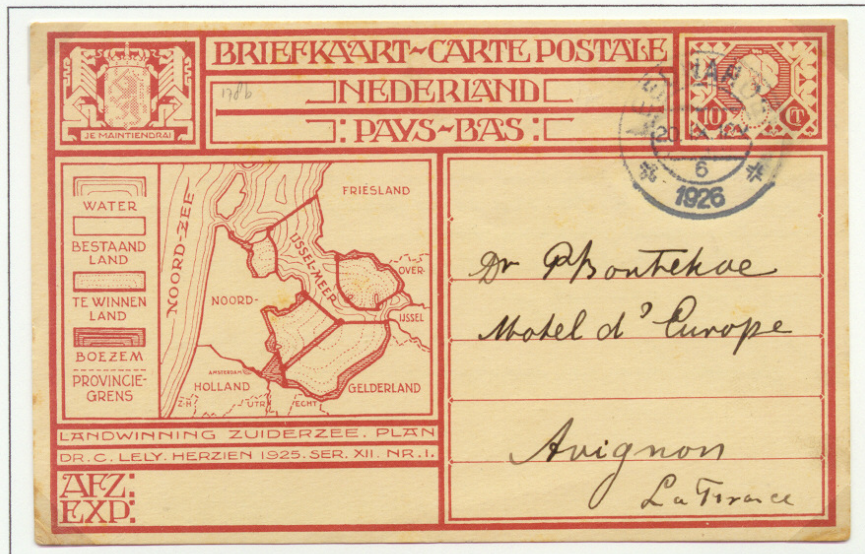 BRIEFKAART~CARTE POSTALE
NEDERLAND
:PAYS~BAS:
JE MAINTIENDRAI
178b
10 CT
20
6
1926
WATER
BESTAAND
LAND
TE WINNEN
LAND
BOEZEM
PROVINCIE-
GRENS
NOORD-ZEE
FRIESLAND
IJSSEL-MEER
OVER-
IJSSEL
NOORD-
HOLLAND
AMSTERDAM
GELDERLAND
Z-H
UTR
ECHT
LANDWINNING ZUIDERZEE. PLAN
DR. C. LELY. HERZIEN 1925. SER. XII. NR. 1.
AFZ:
EXP:
Dr P Bontekoe
Hotel d'Europe
Avignon
La France